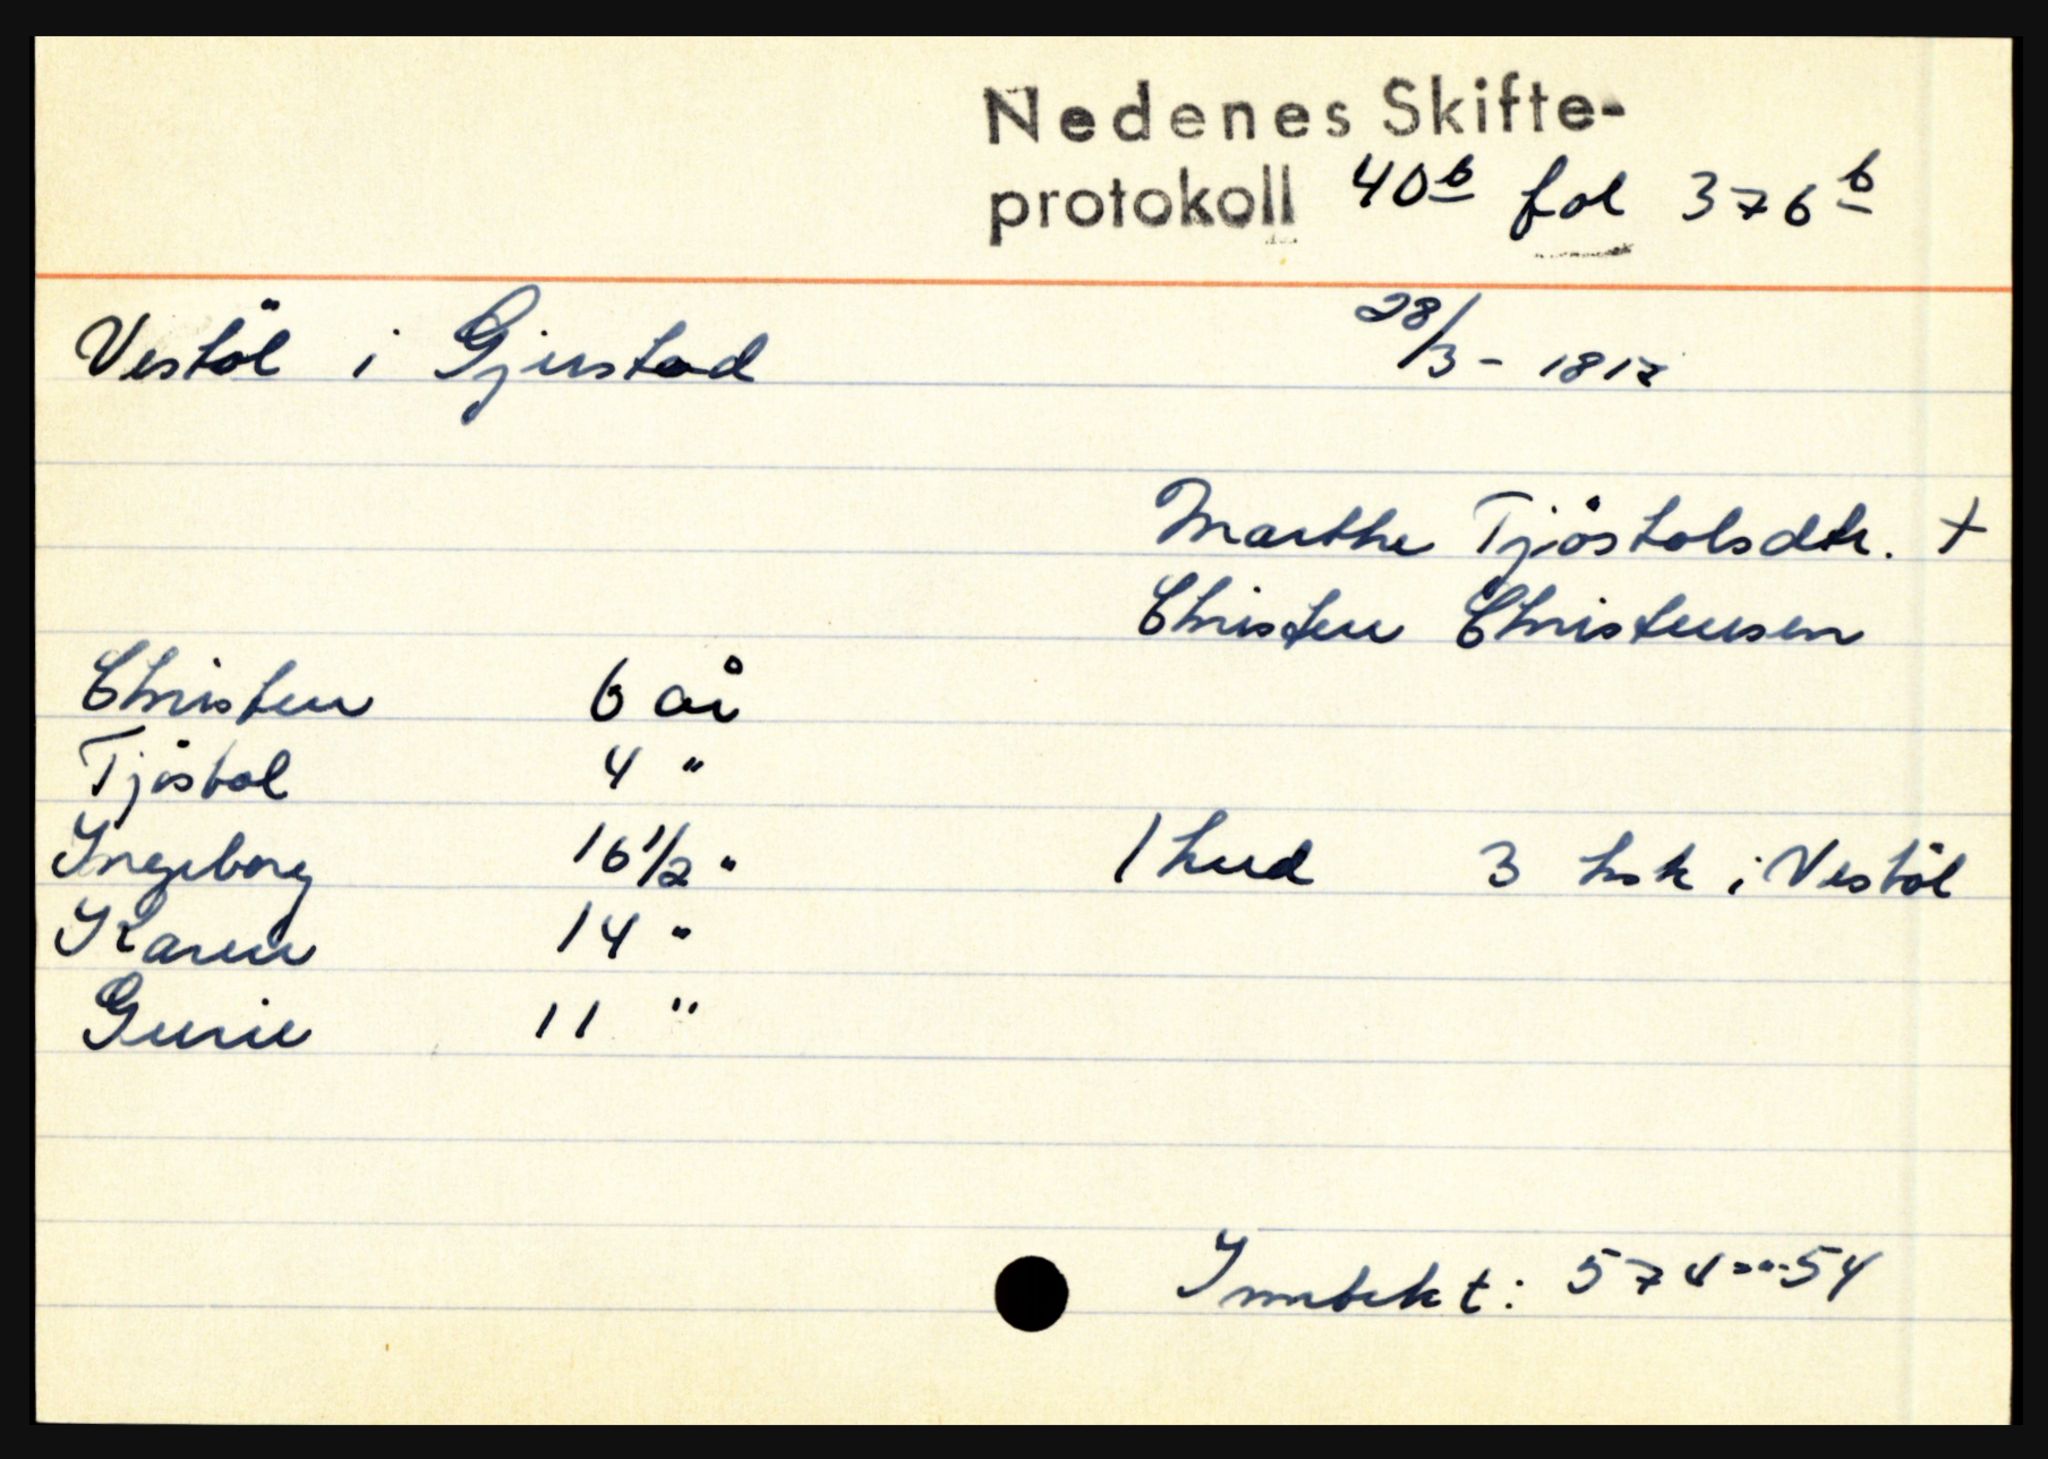 Nedenes Skifte-
protokoll 40b fol 376b
Vestöl i Gjerstad 28/3 - 1812
Marthe Tjöstolsdtr. +
Christen Christensen
Christen 6 år
Tjöstol 4 "
Ingeborg 16 1/2 " 1 hud 3 hsk i Vestöl
Karen 14 "
Gurie 11 "
574 - 54